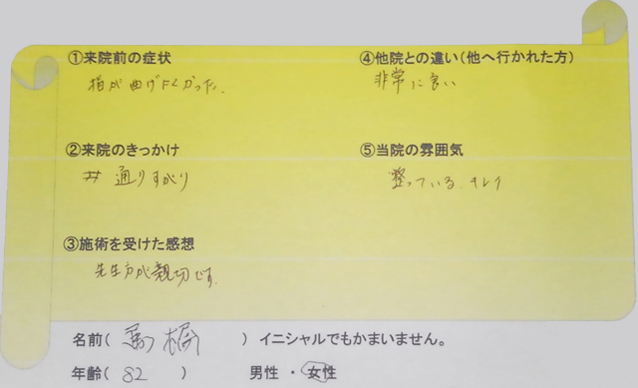 ①来院前の症状
指が曲げにくかった.
②来院のきっかけ
通りすがり
③施術を受けた感想
先生方が親切です.
④他院との違い(他へ行かれた方)
非常に良い
⑤当院の雰囲気
整っている. キレイ
名前( ) イニシャルでもかまいません。
年齢( 82 ) 男性 ・ 女性